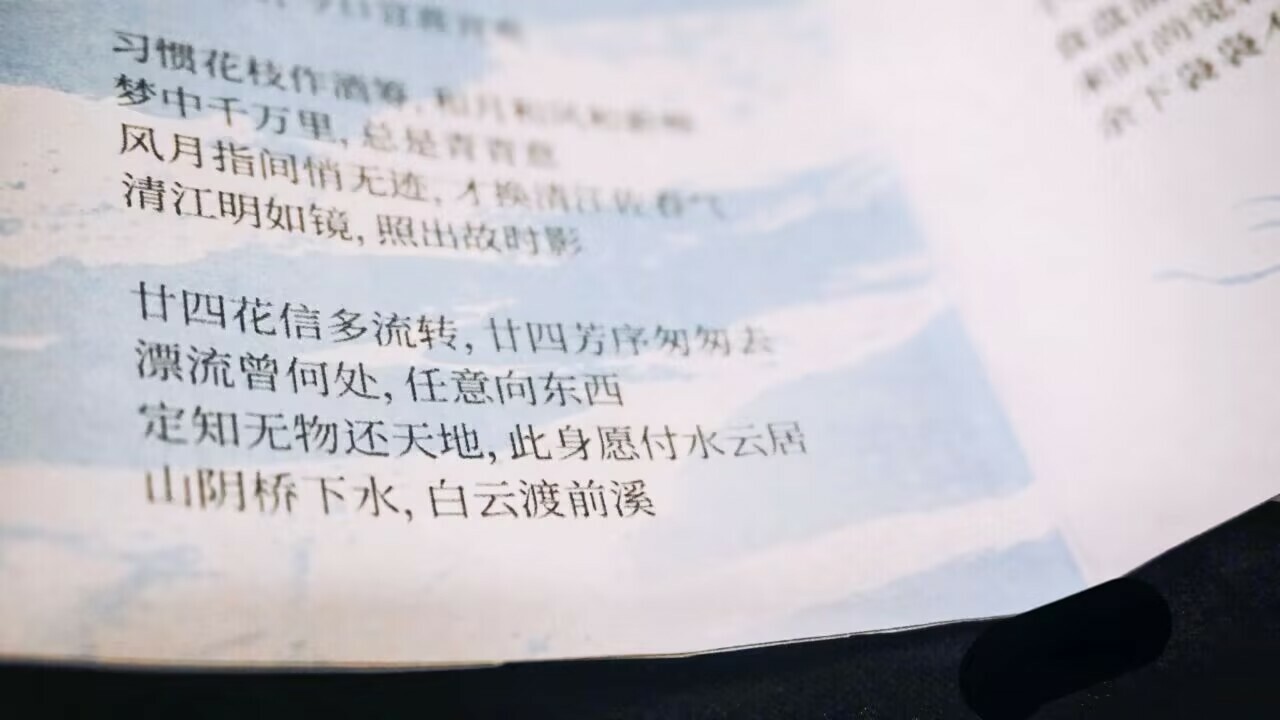 今日宜教青鸾
习惯花枝作酒筹,和月和风和
梦中千万里,总是青青意
风月指间悄无迹,才换清江佐春气
清江明如镜,照出故时影
廿四花信多流转,廿四芳序匆匆去
漂流曾何处,任意向东西
定知无物还天地,此身愿付水云居
山阴桥下水,白云渡前溪
来时的
余下袅袅